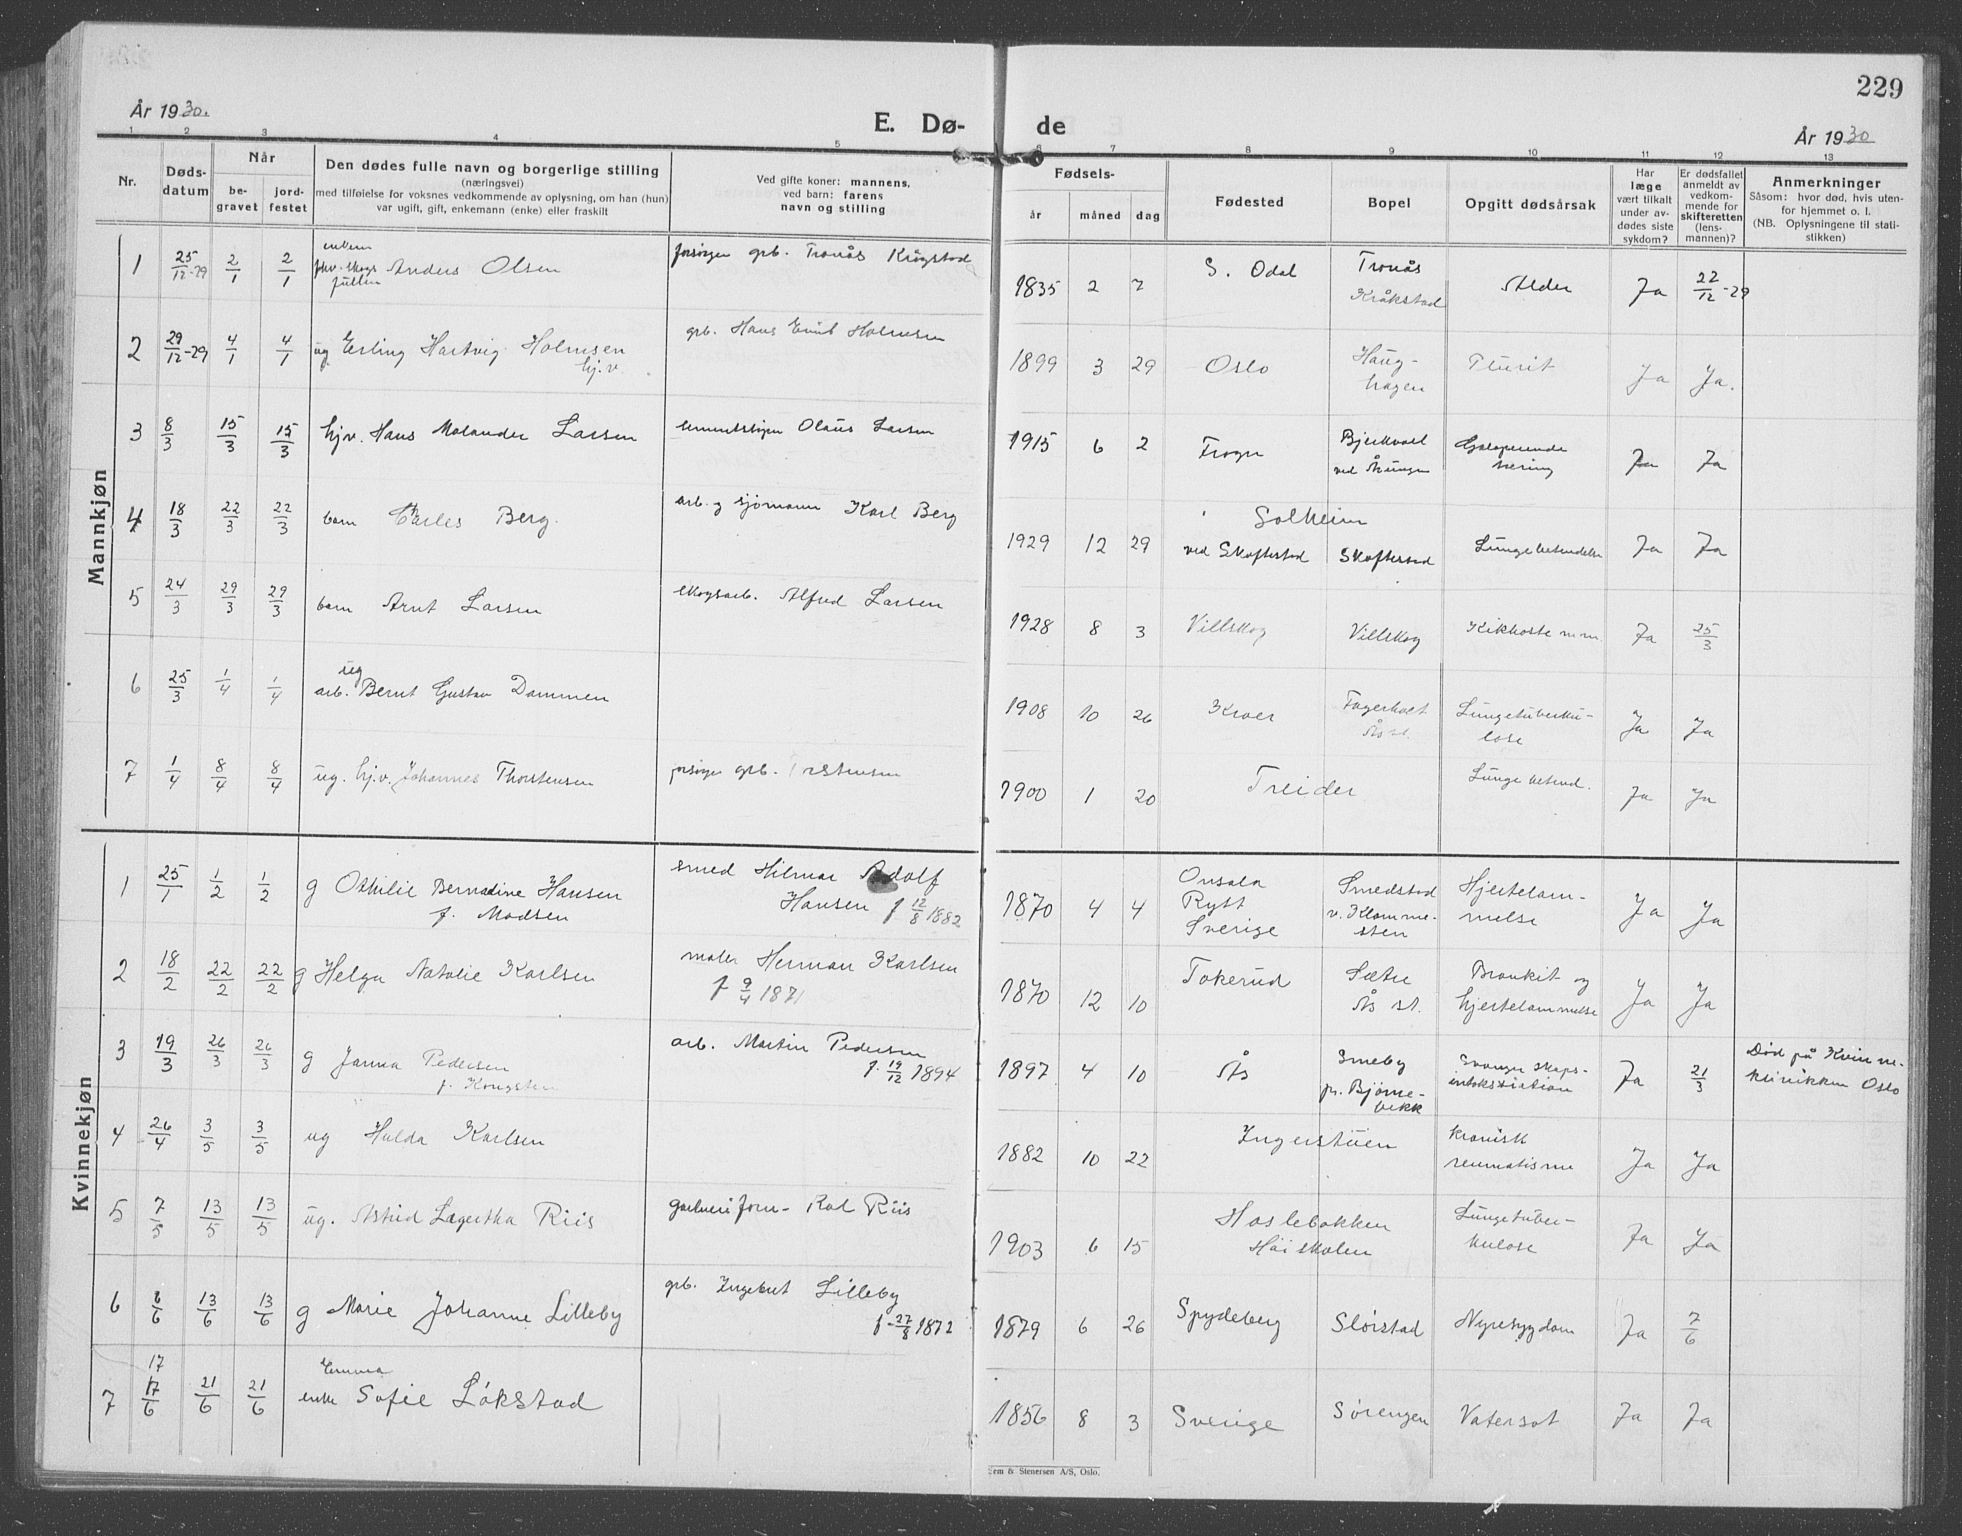 229
År 1930.
E. Dø-
de
År 1930
1 2 3 4 5 6 7 8 9 10 11 12 13
Nr.
Døds-
datum
Når
be-
gravet
jord-
festet
Den dødes fulle navn og borgerlige stilling
(næringsvei)
med tilføielse for voksnes vedkommende av oplysning, om han (hun)
var ugift, gift, enkemann (enke) eller fraskilt
Ved gifte koner: mannens,
ved barn: farens
navn og stilling
Fødsels-
år
måned
dag
Fødested
Bopel
Opgitt dødsårsak
Har
læge
vært tilkalt
under av-
dødes siste
sykdom?
Er dødsfallet
anmeldt av
vedkom-
mende for
skifteretten
(lens-
mannen)?
Anmerkninger
Såsom: hvor død, hvis uten-
for hjemmet o. l.
(NB. Oplysningene til stati-
stikken)
Mannkjøn
1 25/12-29 2/1 2/1 Anders Olsen forsørger grb. Tronås Krogstad 1835 2 7 S. Odal Tronås Kråkstad Alder Ja 22/12-29
2 29/12-29 4/1 4/1 ug Erling Hartvig Holmsen hj.v. grb. Hans Emil Holmsen 1899 3 29 Oslo Haug-
hagen Plurit Ja Ja.
3 8/3 15/3 15/3 hjv. Hans Malander Larsen Olaus Larsen 1915 6 2 Frogn Bjerkvoll
ved Årungen Galoperende
tæring Ja Ja
4 18/3 22/3 22/3 barn Charles Berg. arb. g sjømann Karl Berg 1929 12 29 Solheim
ved Skoftestad Skoftestad Lungebetendelse Ja Ja
5 24/3 29/3 29/3 barn Arnt Larsen skogsarb. Alfred Larsen 1928 8 3 Villskog Villskog Kikhoste m.m. Ja 25/3
6 25/3 1/4 1/4 ug
arb. Bernt Gustav Dammen 1908 10 26 Kroer Fagerholt
Ås st. Lungetuberku-
lose Ja Ja
7 1/4 8/4 8/4 ug. hj.v. Johannes Thorstensen forsørger grb. Torstensen 1900 1 20 Treider Lungebetend. Ja Ja
Kvinnekjøn
1 25/1 1/2 1/2 g Othilie Bernadine Hansen
f. Madsen smed Hilmar Adolf
Hansen f 12/8 1882 1870 4 4 Onsala
Rytt
Sverige Smedstad
v. Klomme-
sten Hjertelam-
melse Ja Ja
2 18/2 22/2 22/2 g Helga Natalie Karlsen maler Herman Karlsen
f 9/4 1871 1870 12 10 Tokerud Sætre
Ås st. Bronkit og
hjertelammelse Ja Ja
3 19/3 26/3 26/3 g Janna Pedersen
f. Kongsten arb. Martin Pedersen
f. 19/12 1894 1897 4 10 Ås Smeby
pr. Bjørne-
bekk Svangerskaps-
intoksikation Ja 21/3 Død på Kvinne-
klinikken Oslo
4 26/4 3/5 3/5 ug Hulda Karlsen 1882 10 22 Ingerstuen kronisk
reumatisme Ja Ja
5 7/5 13/5 13/5 ug. Astrid Lagertha Riis Karl Riis 1903 6 15 Haslebakken
Høiskolen Lungetuber-
kulose Ja Ja
6 8/6 13/6 13/6 g Marie Johanne Lilleby grb. Ingebret Lilleby
f. 27/8 1872 1879 6 26 Spydeberg Slørstad Nyresygdom Ja 7/6
7 17
17/6 21/6 21/6 Emma
enke Sofie Løkstad 1856 8 3 Sverige Sørengen Vatersot Ja Ja
Sem & Stenersen A/S, Oslo.